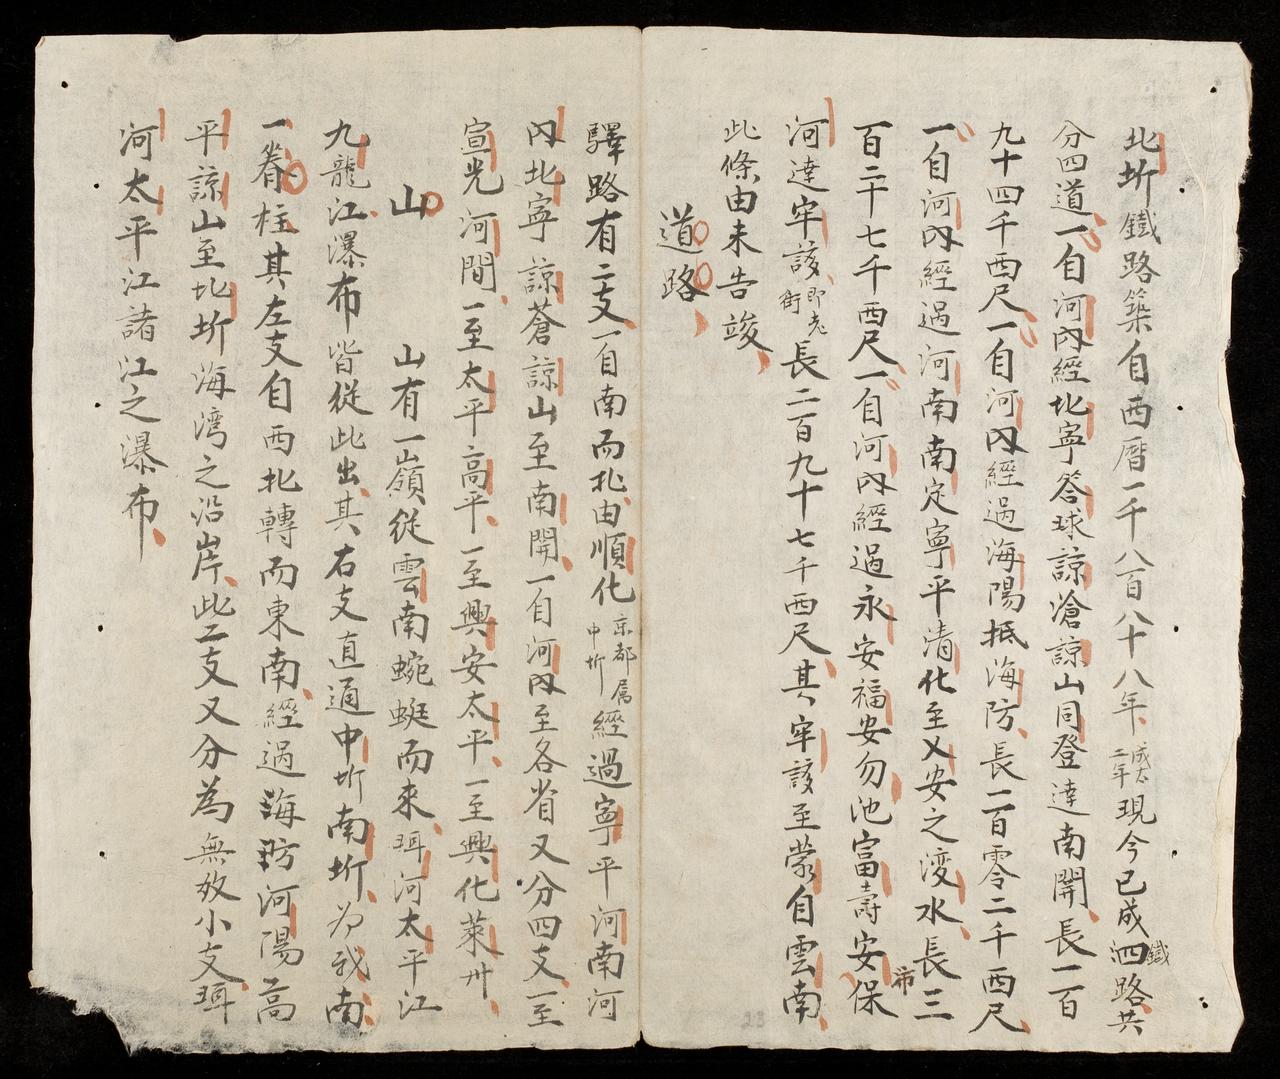 北圻鐵路築自西曆一千八百八十八年成太二年現今已成泗鐵路共
分四道一自河內經北寧答球諒滄諒山同登達南關長一百
九十四千西尺一自河內經過海陽抵海防長一百零二千西尺
一自河內經過河南南定寧平清化至乂安之湥水長三
百二十七千西尺一自河內經過永安福安勿池富壽安保沛
河達牢該即老街長二百九十七千西尺其牢該至蒙自雲南
此條由未告竣
道路
驛路有二支一自南而北由順化京都屬中圻經過寧平河南河
內北寧諒蒼諒山至南關一自河內至各省又分四支一至
宣光河間一至太平高平一至興安太平一至興化萊州
山
山有一嶺從雲南蜿蜒而來珥河太平江
九龍江瀑布皆從此出其右支直通中圻南圻為我南
一脊柱其左支自西北轉而東南經過海防河陽高
平諒山至北圻海灣之沿岸此二支又分為無效小支珥
河太平江諸江之瀑布